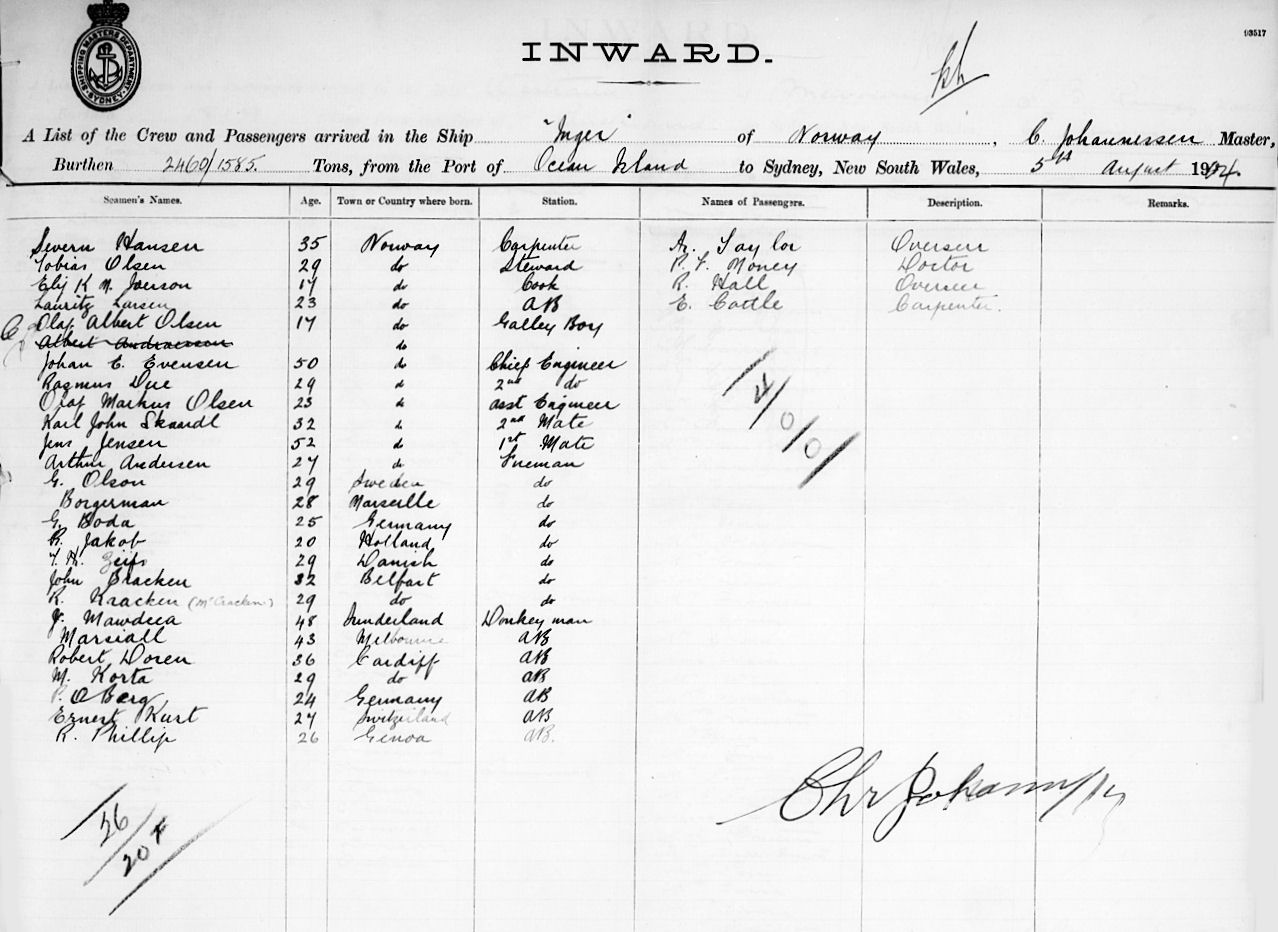 93517
SHIPPING MASTERS DEPARTMENT SYDNEY
INWARD.
A List of the Crew and Passengers arrived in the Ship "Inger" of Norway, C. Johannessen Master,
Burthen 2460/1585. Tons, from the Port of Ocean Island to Sydney, New South Wales, 5th August 1904.
Seamen's Names. Age. Town or Country where born. Station. Names of Passengers. Description. Remarks.
Severn Hansen 35 Norway Carpenter A. Taylor Overseer
Tobias Olsen 29 do Steward P. F. Money Doctor
K M Iverson 17 do Cook R. Hall Overseer
Lauritz Larsen 23 do AB E. Cattle Carpenter.
Olaf Albert Olsen 17 do Galley Boy
Albert Andraesson do
Johan E. Evensen 50 do Chief Engineer
Rasmus Due 29 do 2nd do
Olaf Markus Olsen 23 do asst Engineer
Karl John 32 do 2nd Mate
Jens Jensen 52 do 1st Mate
Arthur Andersen 27 do Fireman
G. Olson 29 Sweden do
Borgerman 28 Marseille do
G. Boda 25 Germany do
B. Jakob 20 Holland do
29 Danish do
John Bracken 32 Belfast do
R. Kracken (McCracken) 29 do do
J. Mawdeca 48 Sunderland Donkeyman
Marsiall 43 Melbourne AB
Robert Doren 36 Cardiff AB
M. Korta 29 do AB
P. O Berg 24 Germany AB
Ernest Kurt 27 Switzerland AB
R. Phillip 26 Genoa AB.
4/0/0
Chr Johannessen
26
20 F